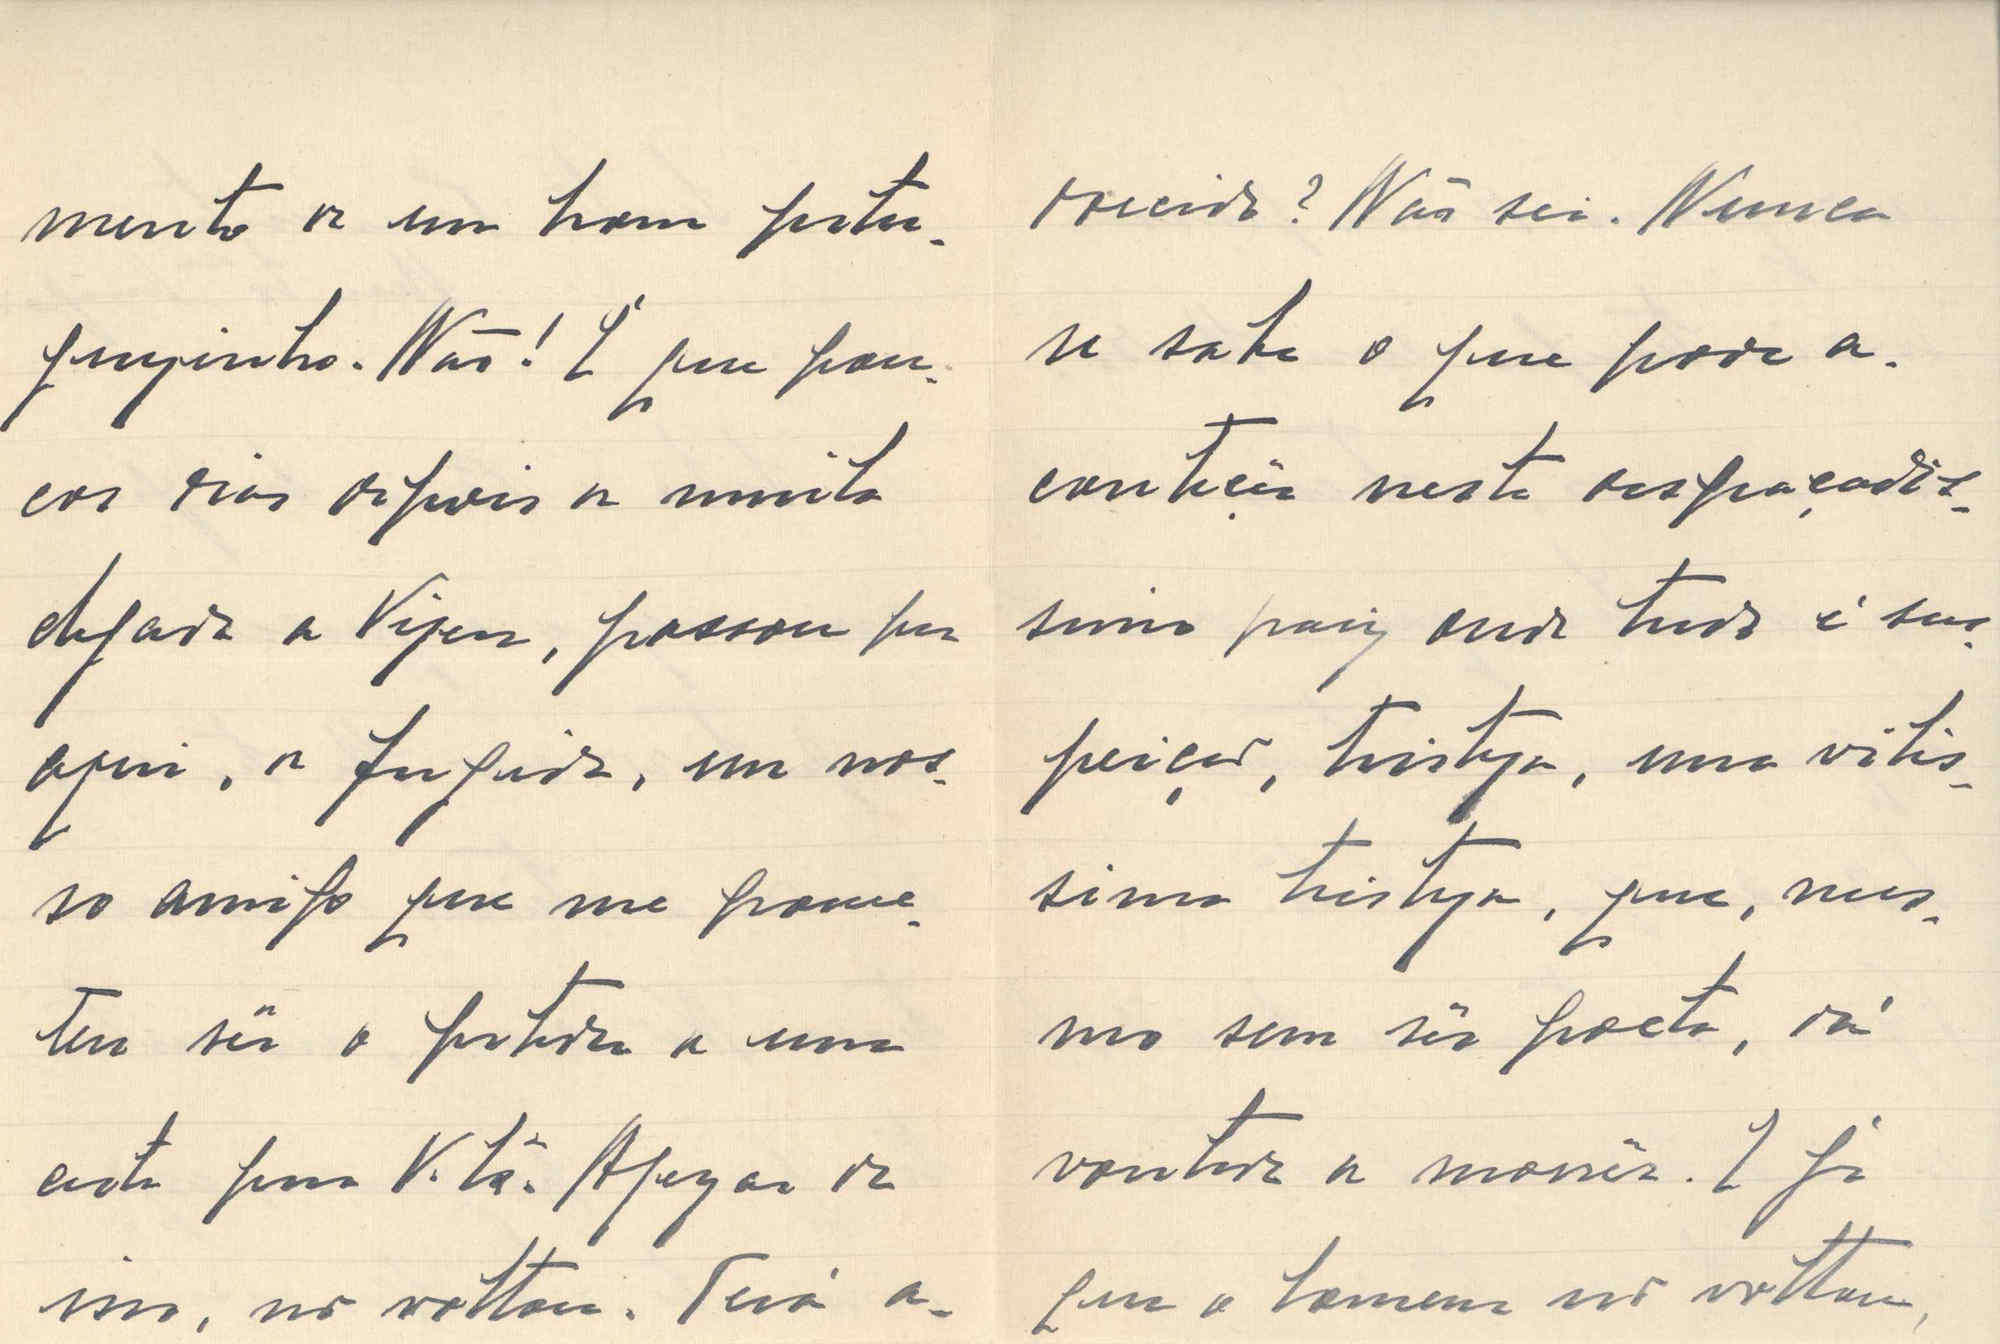 mento de um bom portu-
guezinho. Não! É que pou-
cos dias depois de muito
chegado de Vizeu, passou por
aqui, de fugida, um nos-
so amigo que me prome-
teu sêr o portador de uma
carta para V. lá. Apezar de
isso, não voltou. Terá a-
doecido? Não sei. Nunca
se sabe o que pode a-
contecêr neste desgraçadis-
simo paiz onde tudo é sus-
peição, tristeza, uma vilis-
sima tristeza, que, mes-
mo sem sêr poeta, dá
vontade de morrêr. E já
que o homem não voltou,